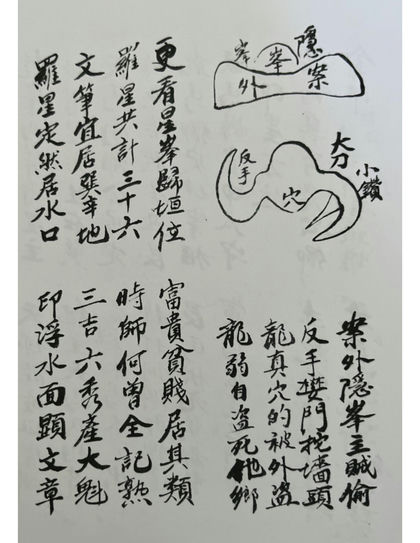 隱
峯
案
外
大刀
小鑽
反手
穴
案外隱峯主賊偷
反手攀門挖墻頭
龍真穴的被外盜
龍弱自盜死他鄉
更看星峯歸垣位 富貴貧賤居其類
羅星共計三十六 時師何曾全記熟
文筆宜居巽辛地 三吉六秀產大魁
羅星定然居水口 印浮水面顯文章